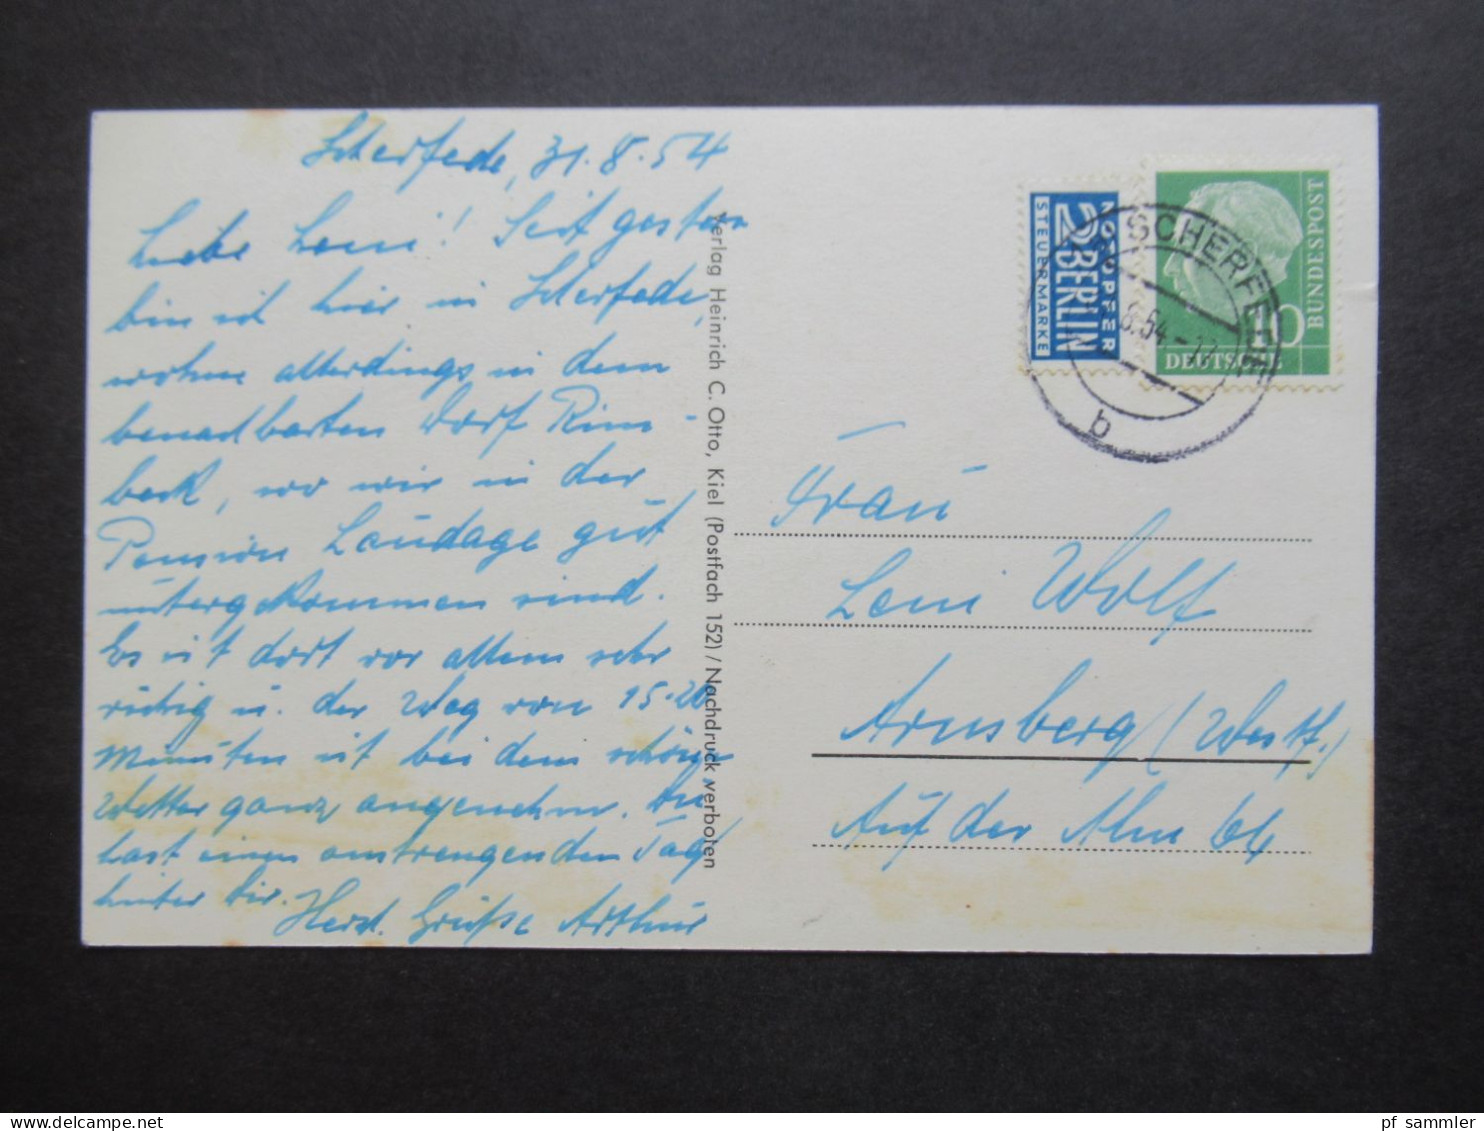 Scherfede, 31.8.54
Liebe Leni! Seit gestern
bin ich hier in Scherfede,
wohne allerdings in dem
benachbarten Dorf Rim-
beck, wo wir in der
Pension Laudage gut
untergekommen sind.
Es ist dort vor allem sehr
ruhig u. der Weg von 15-20
Minuten ist bei dem schönen
Wetter ganz angenehm. Du
hast einen anstrengenden Tag
hinter Dir.
Herzl. Grüße Arthur
Verlag Heinrich C. Otto, Kiel (Postfach 152) / Nachdruck verboten
NOTOPFER
2 BERLIN
STEUERMARKE
SCHERFEDE
8.54-17
b
10
DEUTSCHE
BUNDESPOST
Frau
Leni Wolf
Arnsberg (Westf.)
Auf der Alm 64
pf sammler